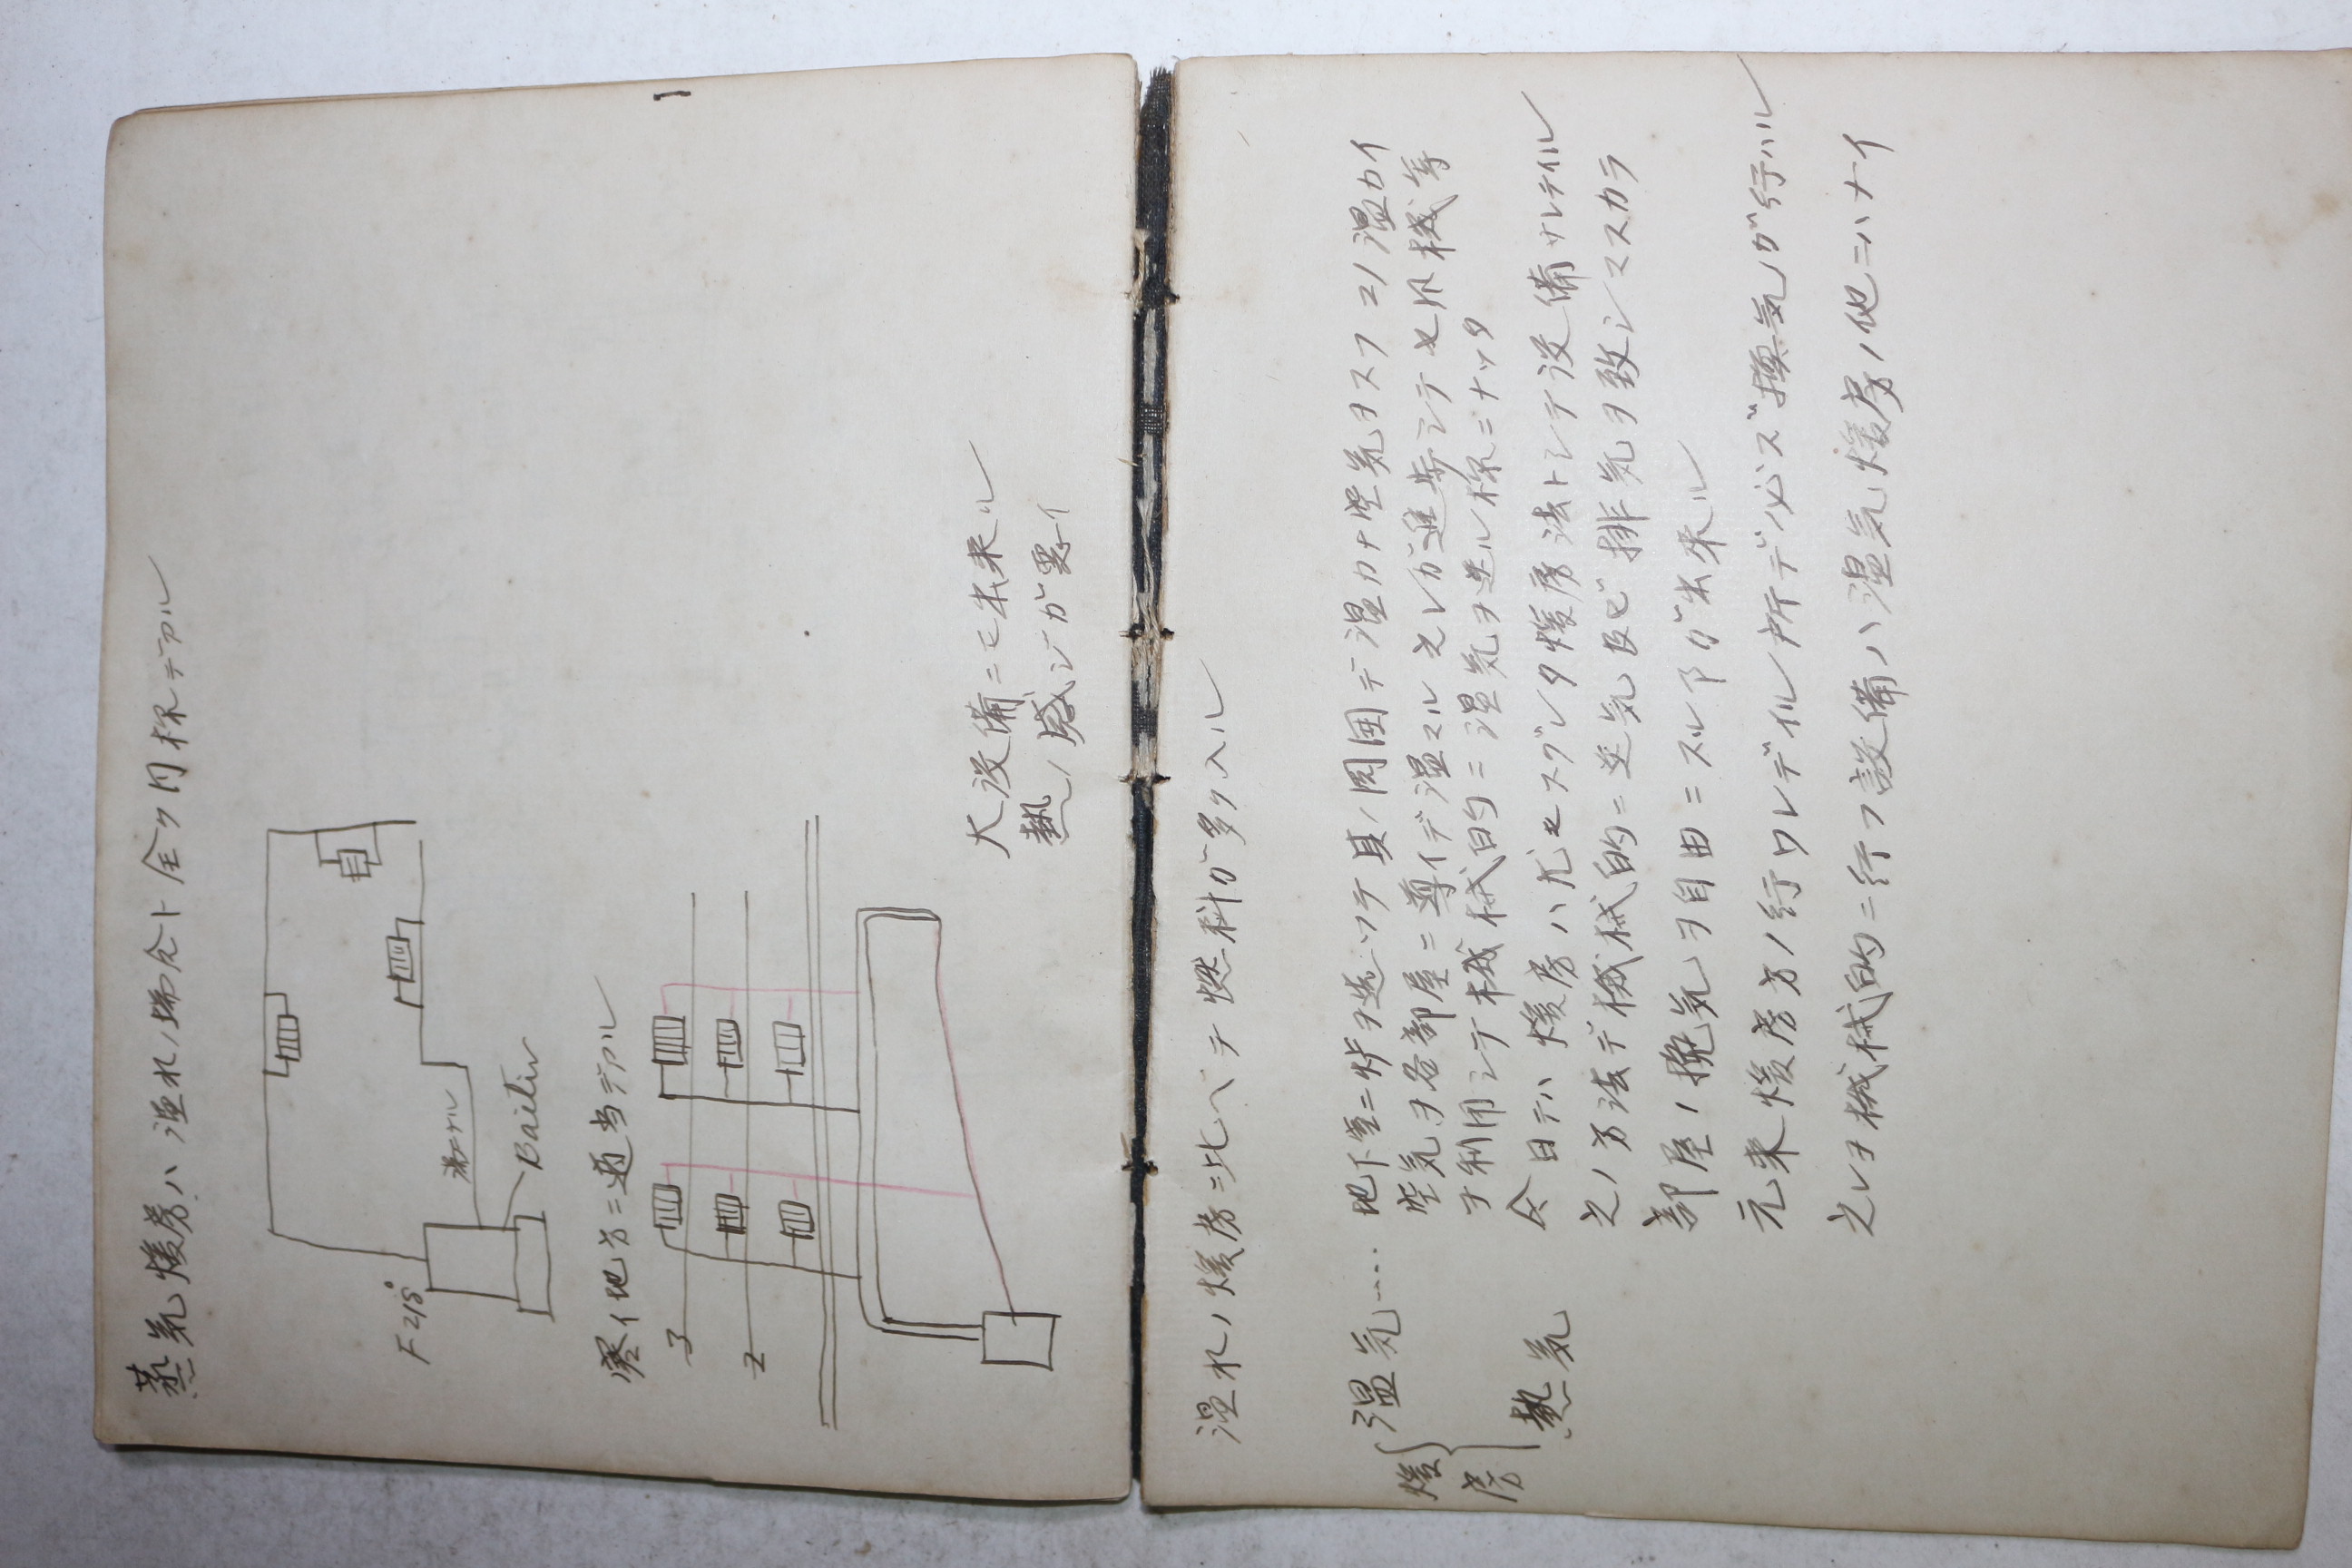 蒸気煖房ハ温水ノ場合ト全ク同様デアル
F 218°
Bailer
寒イ地方ニ適当デアル
3
2
大設備ニモ出来ル
熱ノ感ジガ悪イ
1
温水ノ煖房ニ比ベテ燃料ガ多ク入ル
煖房
温気....
熱気
地下室ニ炉ヲ造ッテ其ノ周囲デ温カナ空気ヲスフコノ温カイ
空気ヲ各部屋ニ導イデ温マル之レガ進歩シテ セ風機等
ヲ利用シテ機械的ニ温気ヲ送ル様ニナッタ
今日デハ煖房ハ尤モスグレタ煖房法トシテ設備サレテイル
之ノ方法デ機械的ニ送気及ビ排気ヲ致シマスカラ
部屋ノ換気ヲ自由ニスル下ガ出来ル
元来煖房方ノ行ワレテイル所デ必ズ換気ガ行ハル
之レヲ機械的ニ行フ設備ハ温気煖房ノ他ニハナイ